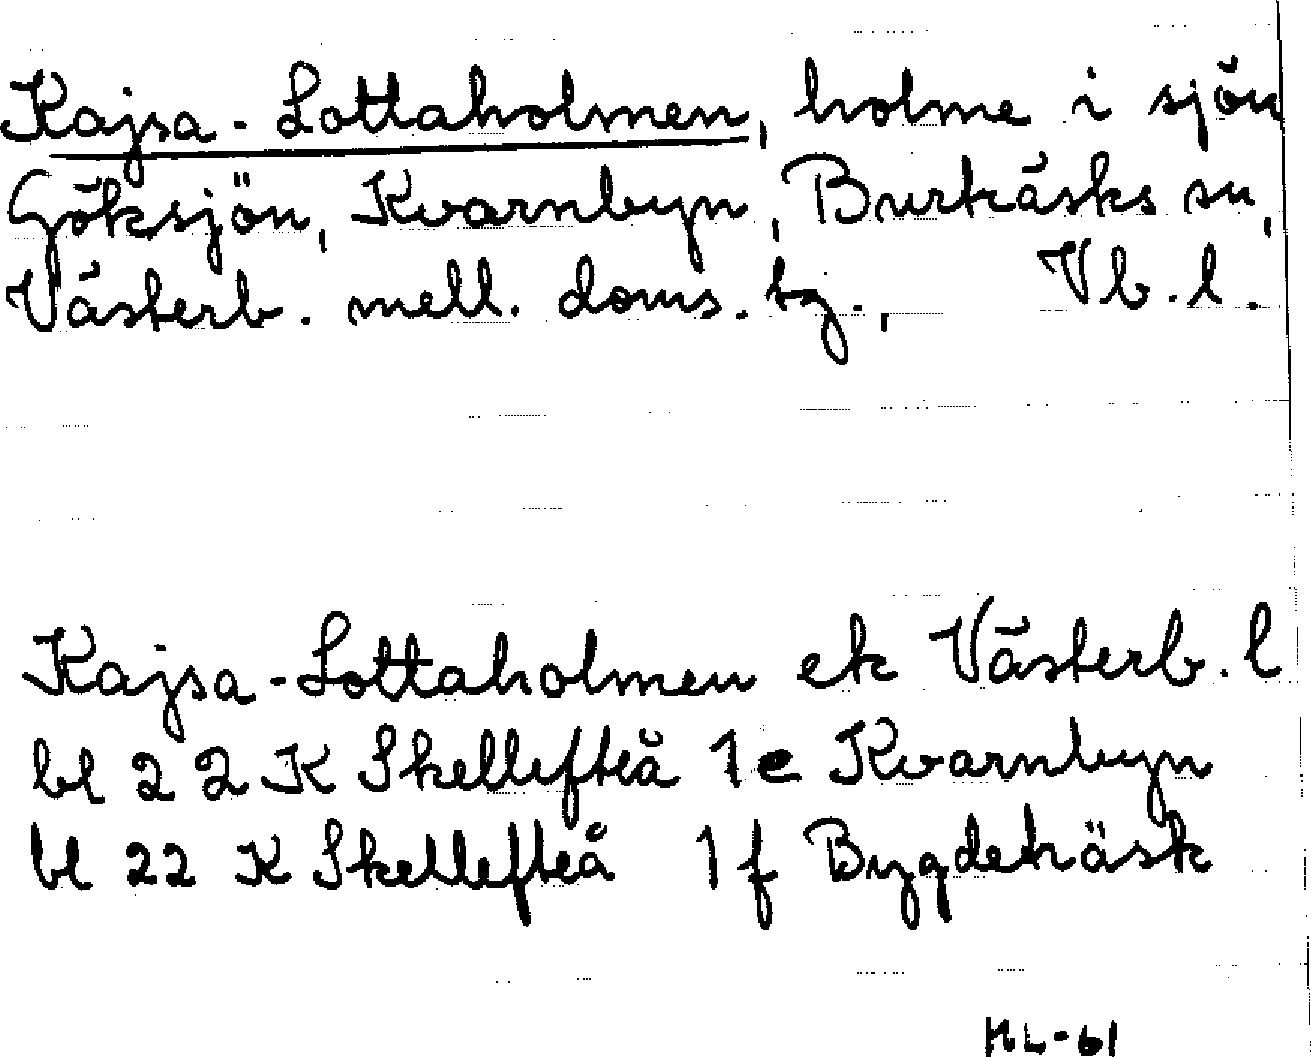 Kajsa-Lottaholmen, holme i sjön
Göksjön, Kvarnbyn, Burträsks sn,
Västerb. mell. doms. tg., Vb. l.
Kajsa-Lottaholmen ek Västerb. l
bl 22 K Skellefteå 1e Kvarnbyn
bl 22 K Skellefteå 1f Bygdeträsk
ML-61